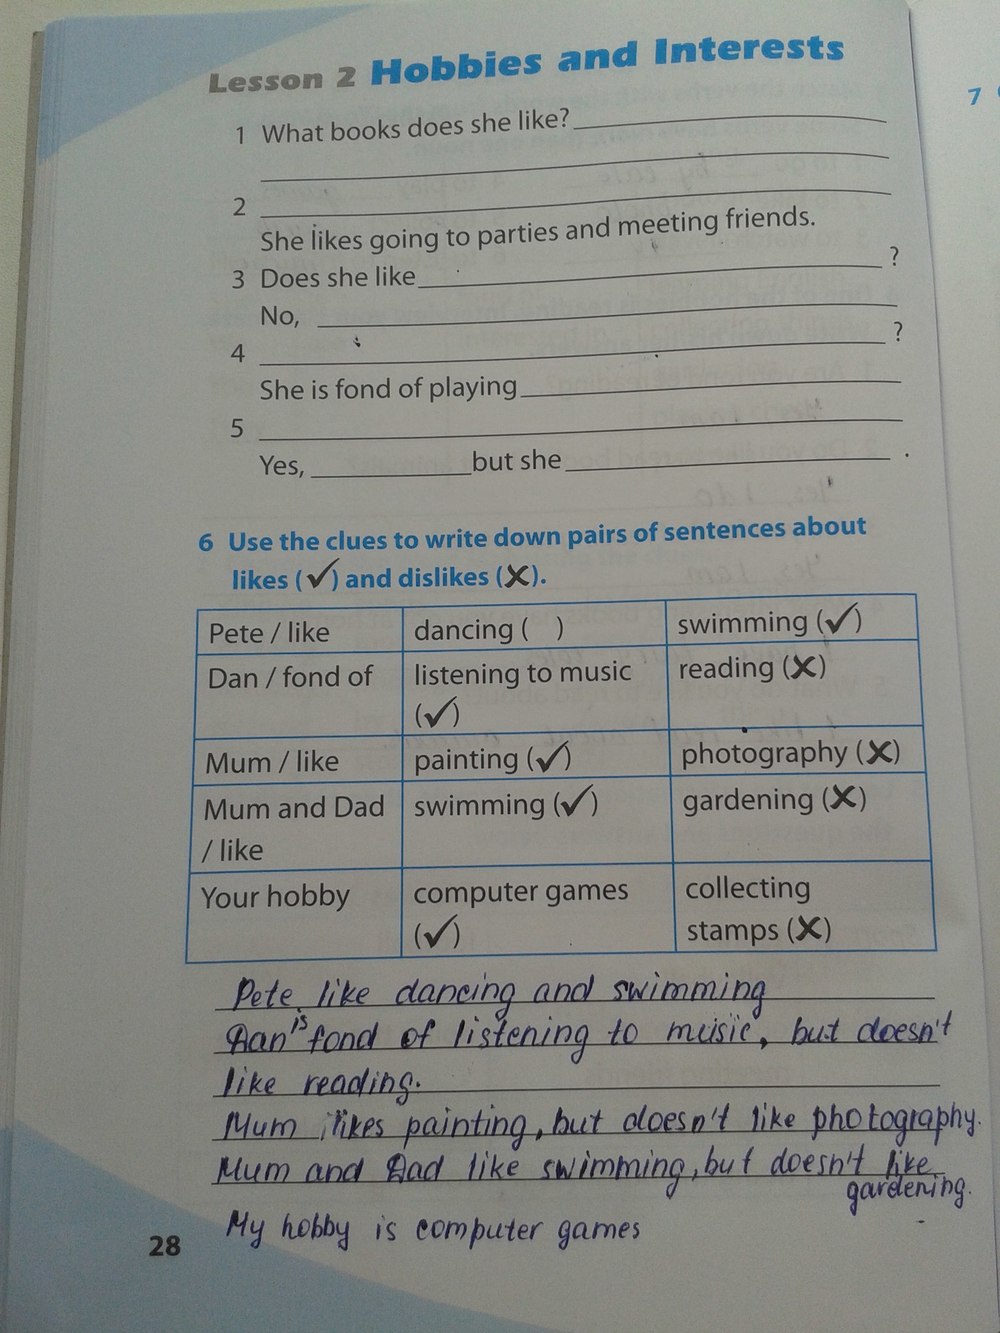 Lesson 2 Hobbies and Interests
7
1 What books does she like?
2
She likes going to parties and meeting friends.
3 Does she like ?
No,
4 ?
She is fond of playing
5
Yes, but she .
6 Use the clues to write down pairs of sentences about
likes (✓) and dislikes (✗).
Pete / like dancing ( ) swimming (✓)
Dan / fond of listening to music reading (✗)
(✓)
Mum / like painting (✓) photography (✗)
Mum and Dad swimming (✓) gardening (✗)
/ like
Your hobby computer games collecting
(✓) stamps (✗)
Pete like dancing and swimming
Dan is fond of listening to music, but doesn't
like reading.
Mum likes painting, but doesn't like photography.
Mum and Dad like swimming, but doesn't like
gardening.
My hobby is computer games
28